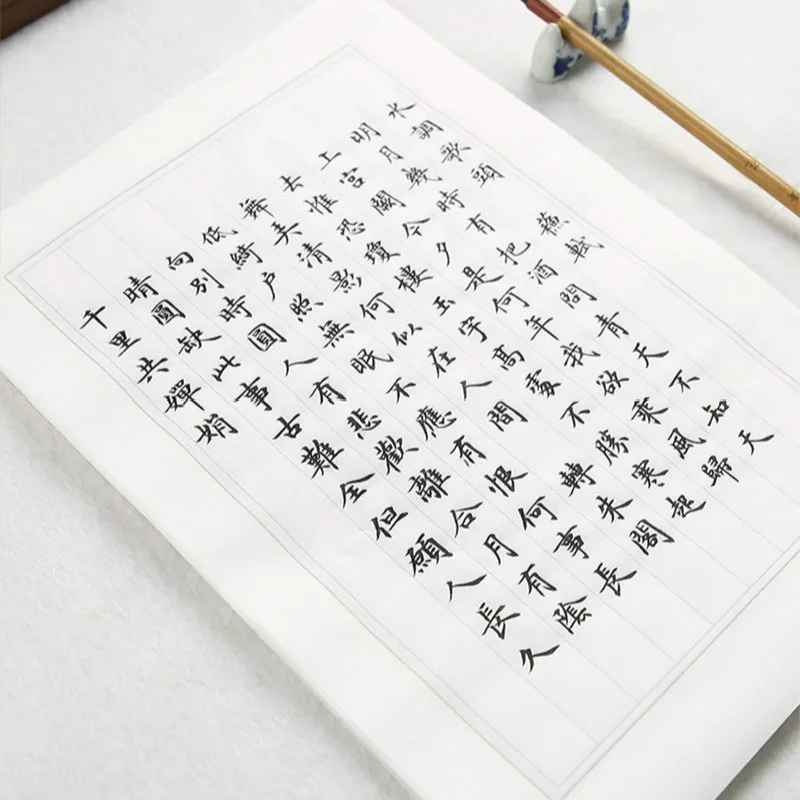 水調歌頭 蘇軾
明月幾時有把酒問青天不知天
上宮闕今夕是何年我欲乘風歸
去惟恐瓊樓玉宇高處不勝寒起
舞弄清影何似在人間 轉朱閣
低綺戶照無眠不應有恨何事長
向別時圓人有悲歡離合月有陰
晴圓缺此事古難全但願人長久
千里共嬋娟